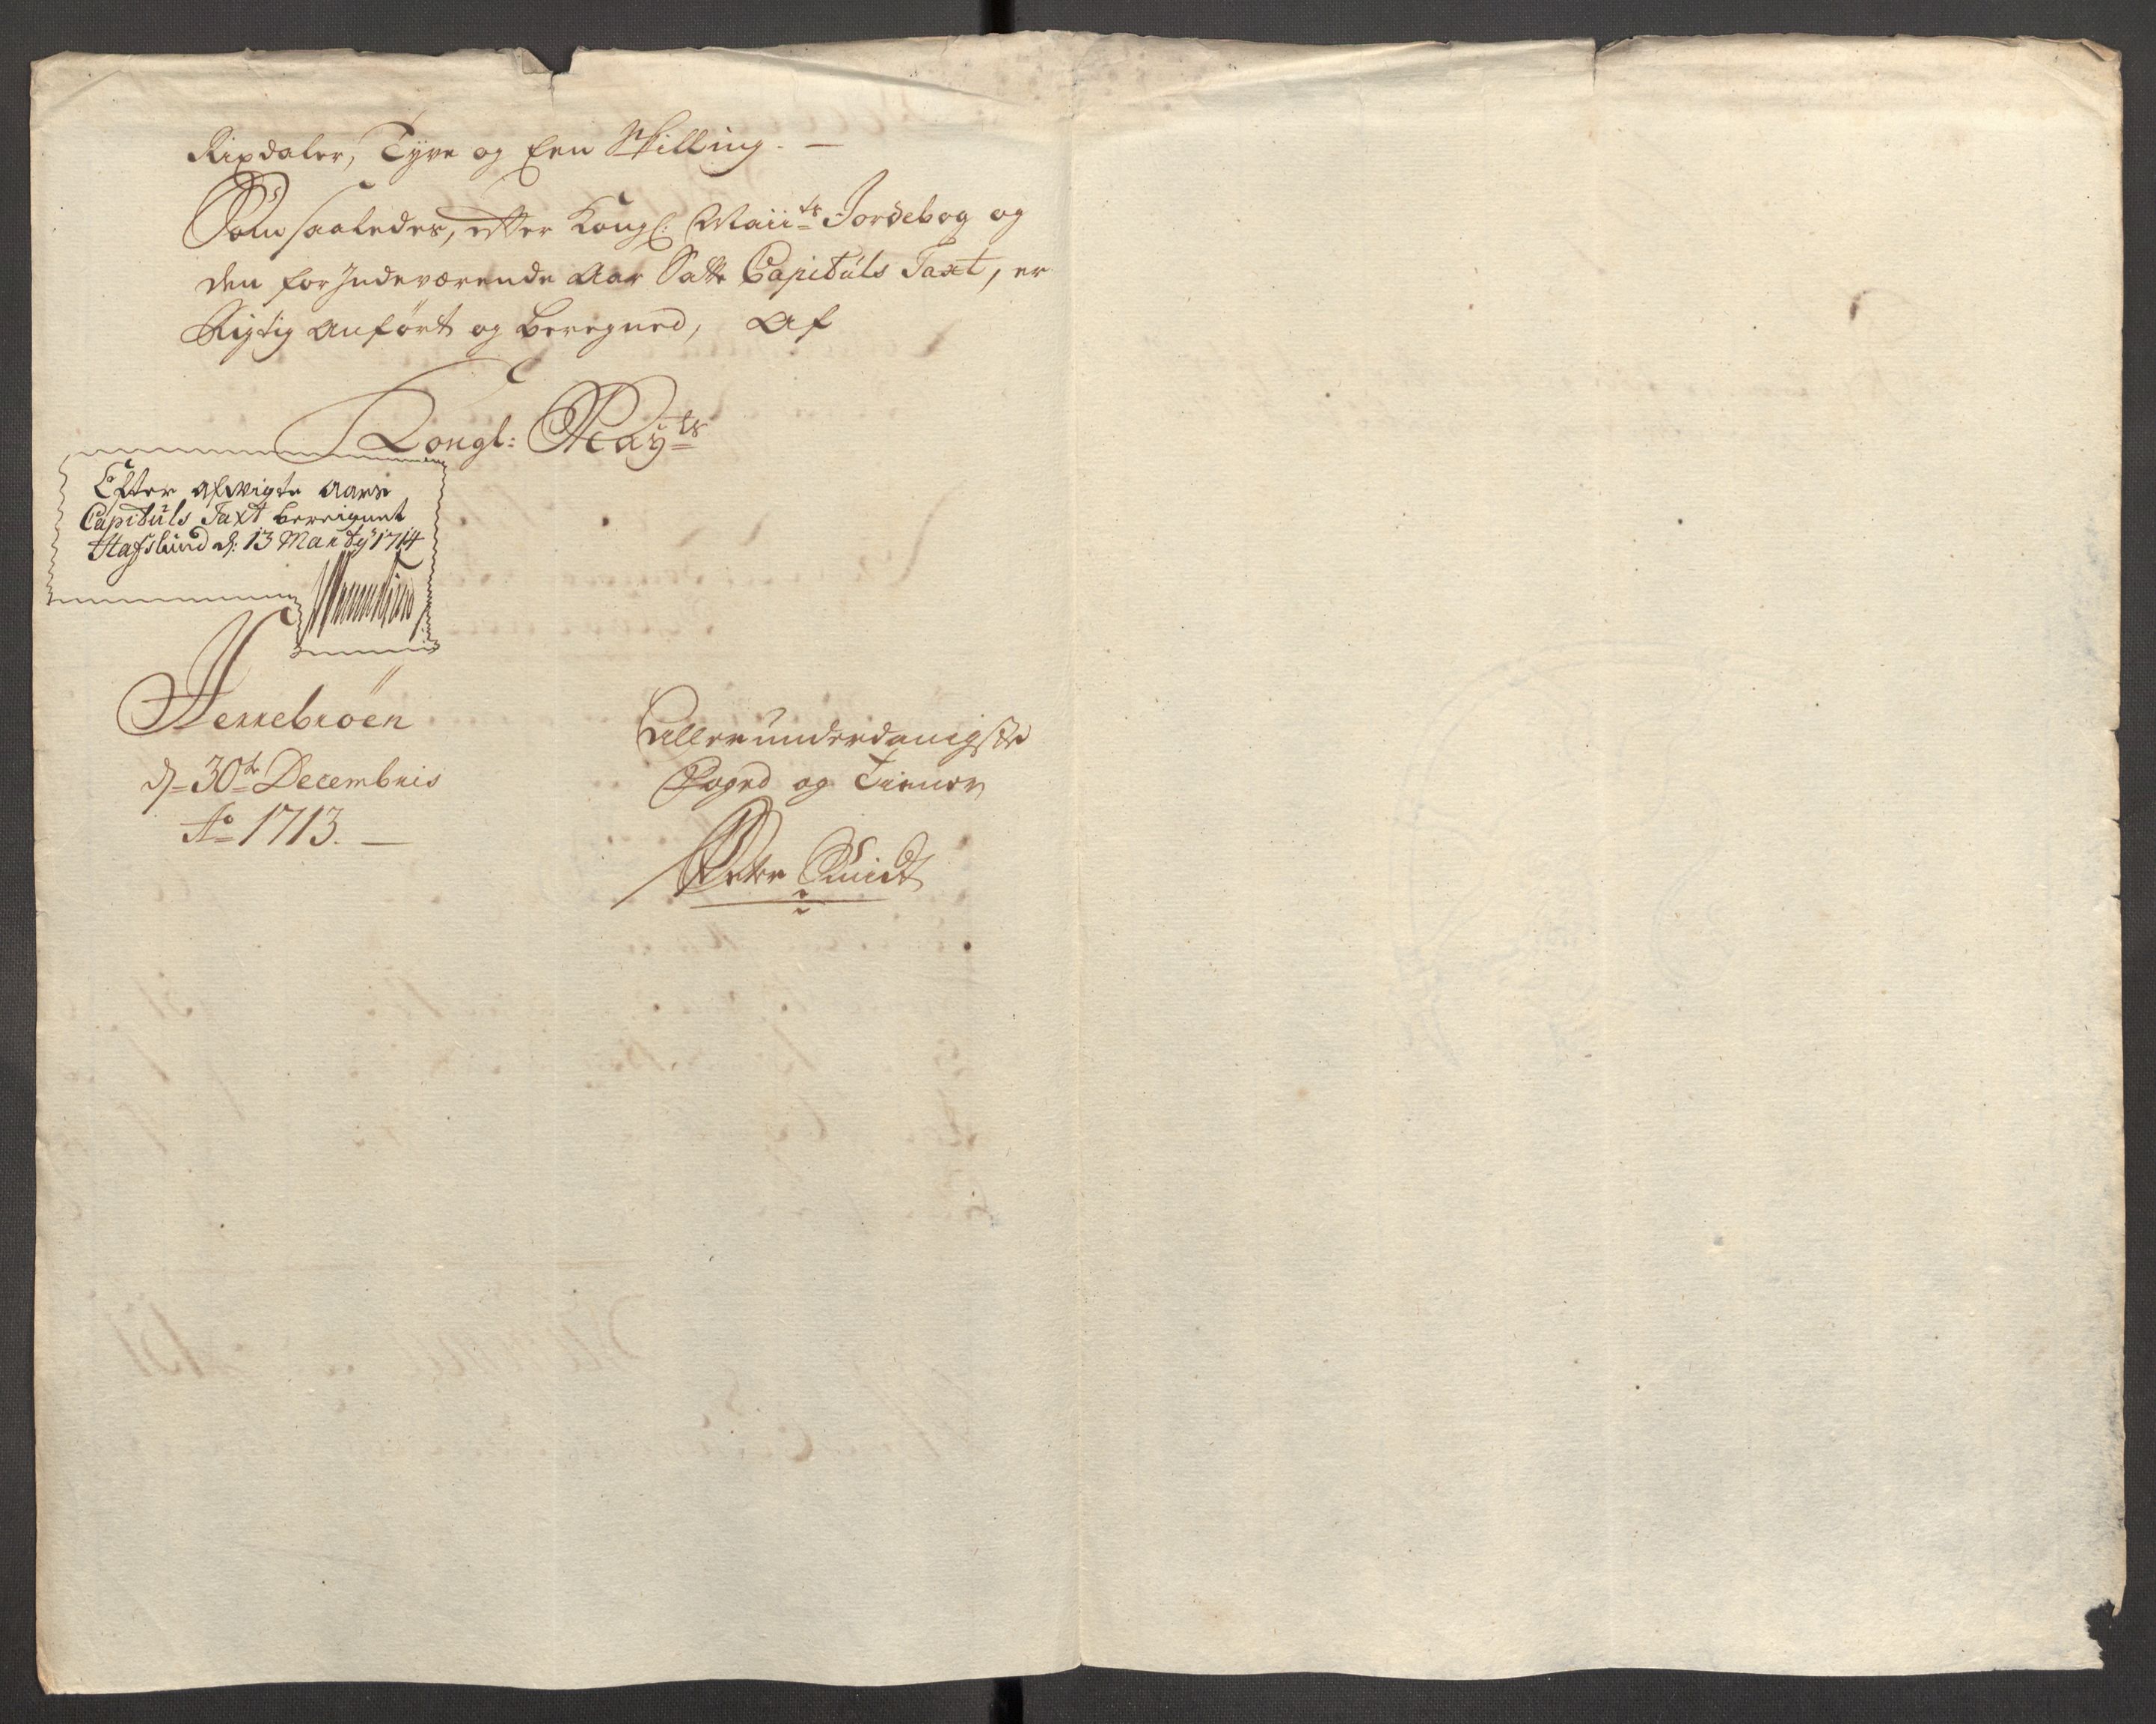 Rixdaler, Tyve og Een Skilling. —
Som saaledes, efter Kongl: Maii^ts Jordebog og
den for Indeværende Aar Satte Capituls Taxt, er
Rigtig Anført og beregned, Af
Kongl: May^ts
Efter afwigte Aars
Capituls Taxt bereignet
Hafslund d: 13 Marty 1714
Herrebröen
d= 30^te Decembris
Ao 1713. —
Allerunderdanigste
Foged og Tiener
Peter Smidt